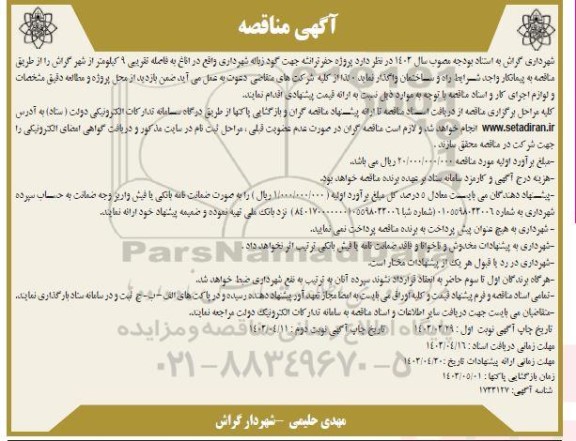 آگهی مناقصه
شهرداری گراش به استناد بودجه مصوب سال ۱۴۰۳ در نظر دارد پروژه حفر ترانشه جهت گود زباله شهرداری واقع در اناغ به فاصله تقریبی ۹ کیلومتر از شهر گراش را از طریق
مناقصه به پیمانکار واجد شرایط راه و ساختمان واگذار نماید . لذا از کلیه شرکت های متقاضی دعوت به عمل می آید ضمن بازدید از محل پروژه و مطالعه دقیق مشخصات
و لوازم اجرای کار و اسناد مناقصه با توجه به موارد ذیل نسبت به ارائه قیمت پیشنهادی اقدام نمایند.
کلیه مراحل برگزاری مناقصه از دریافت اسناد مناقصه تا ارائه پیشنهاد مناقصه گران و بازگشایی پاکتها از طریق درگاه سامانه تدارکات الکترونیکی دولت ( ستاد) به آدرس
www.setadiran.ir انجام خواهد شد و لازم است مناقصه گران در صورت عدم عضویت قبلی ، مراحل ثبت نام در سایت مذکور و دریافت گواهی امضای الکترونیکی را
جهت شرکت در مناقصه محقق سازند .
-مبلغ برآورد اولیه مورد مناقصه ۲۰/۰۰۰/۰۰۰/۰۰۰ ریال می باشد.
-هزینه درج آگهی و کارمزد سامانه ستاد بر عهده برنده مناقصه خواهد بود.
-پیشنهاد دهندگان می بایست معادل ۵ درصد کل مبلغ برآورد اولیه ( ۱/۰۰۰/۰۰۰/۰۰۰ ریال ) را به صورت ضمانت نامه بانکی یا فیش واریز وجه ضمانت به حساب سپرده
شهرداری به شماره نزد بانک ملی تهیه نموده و ضمیمه پیشنهاد خود ارائه نمایند.
- شهرداری به هیچ عنوان پیش پرداخت به برنده مناقصه پرداخت نمی نمایید.
-شهرداری به پیشنهادات مخدوش و ناخوانا و فاقد ضمانت نامه یا فیش بانکی ترتیب اثر نخواهد داد .
-شهرداری در رد یا قبول هر یک از پیشنهادات مختار است.
-هرگاه برندگان اول تا سوم حاضر به انعقاد قرارداد نشوند سپرده آنان به ترتیب به نفع شهرداری ضبط خواهد شد.
-تمامی اسناد مناقصه و فرم پیشنهاد قیمت و کلیه اوراق می بایست به امضا مجاز تعهدآور پیشنهاد دهنده رسیده و در پاکت های الف -ب- ج ثبت و در سامانه ستاد بارگذاری نمایند.
-متقاضیان می بایست جهت دریافت سایر اطلاعات و اسناد مناقصه به سامانه تدارکات الکترونیک دولت مراجعه نمایند.
تاریخ چاپ آگهی نوبت اول : ۱۴۰۳/۰۳/۲۹ تاریخ چاپ آگهی نوبت دوم : ۱۴۰۳/۰۴/۱۱
مهلت زمانی دریافت اسناد : ۱۴۰۳/۰۴/۱۶
مهلت زمانی ارائه پیشنهادات تاریخ : ۱۴۰۳/۰۴/۳۰
زمان بازگشایی پاکتها : ۱۴۰۳/۰۵/۰۱
شناسه آگهی: ۱۷۳۳۱۲۷
مهدی حلیمی –شهردار گراش
ParsNamadData
۰۲۱-۸۸۳۴۹۶۷۰-۵